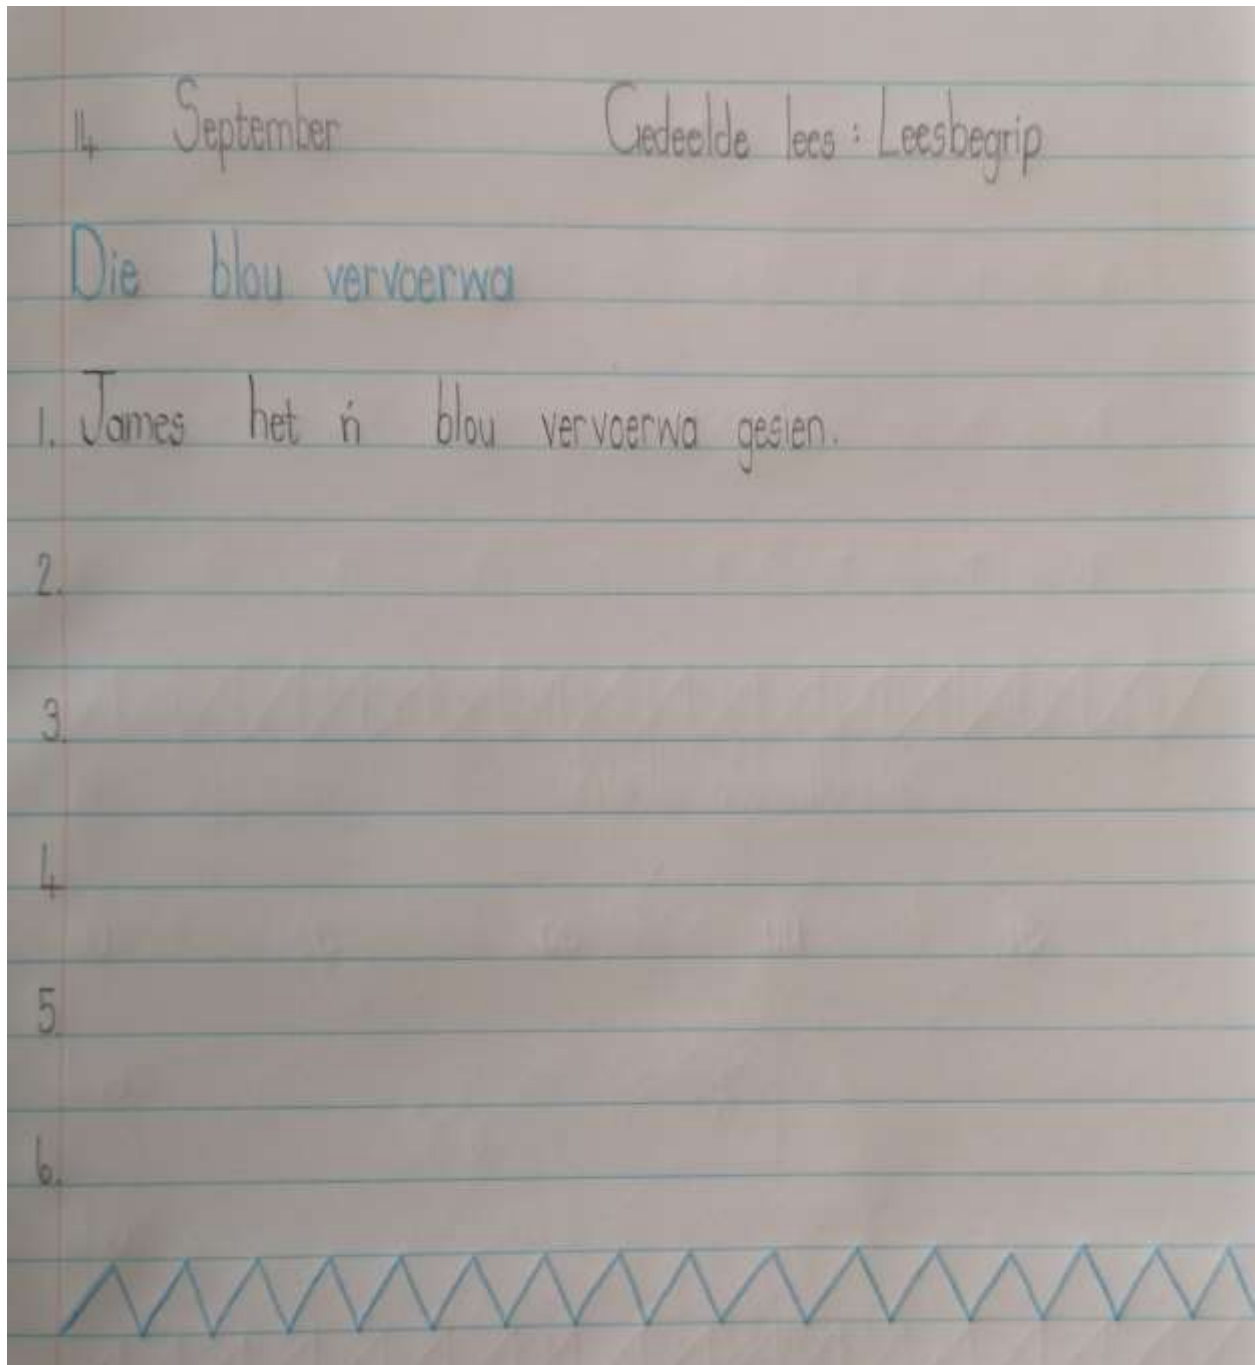 14 September Gedeelde lees : Leesbegrip
Die blou vervoerwa
1. James het 'n blou vervoerwa gesien.
2.
3.
4.
5.
6.